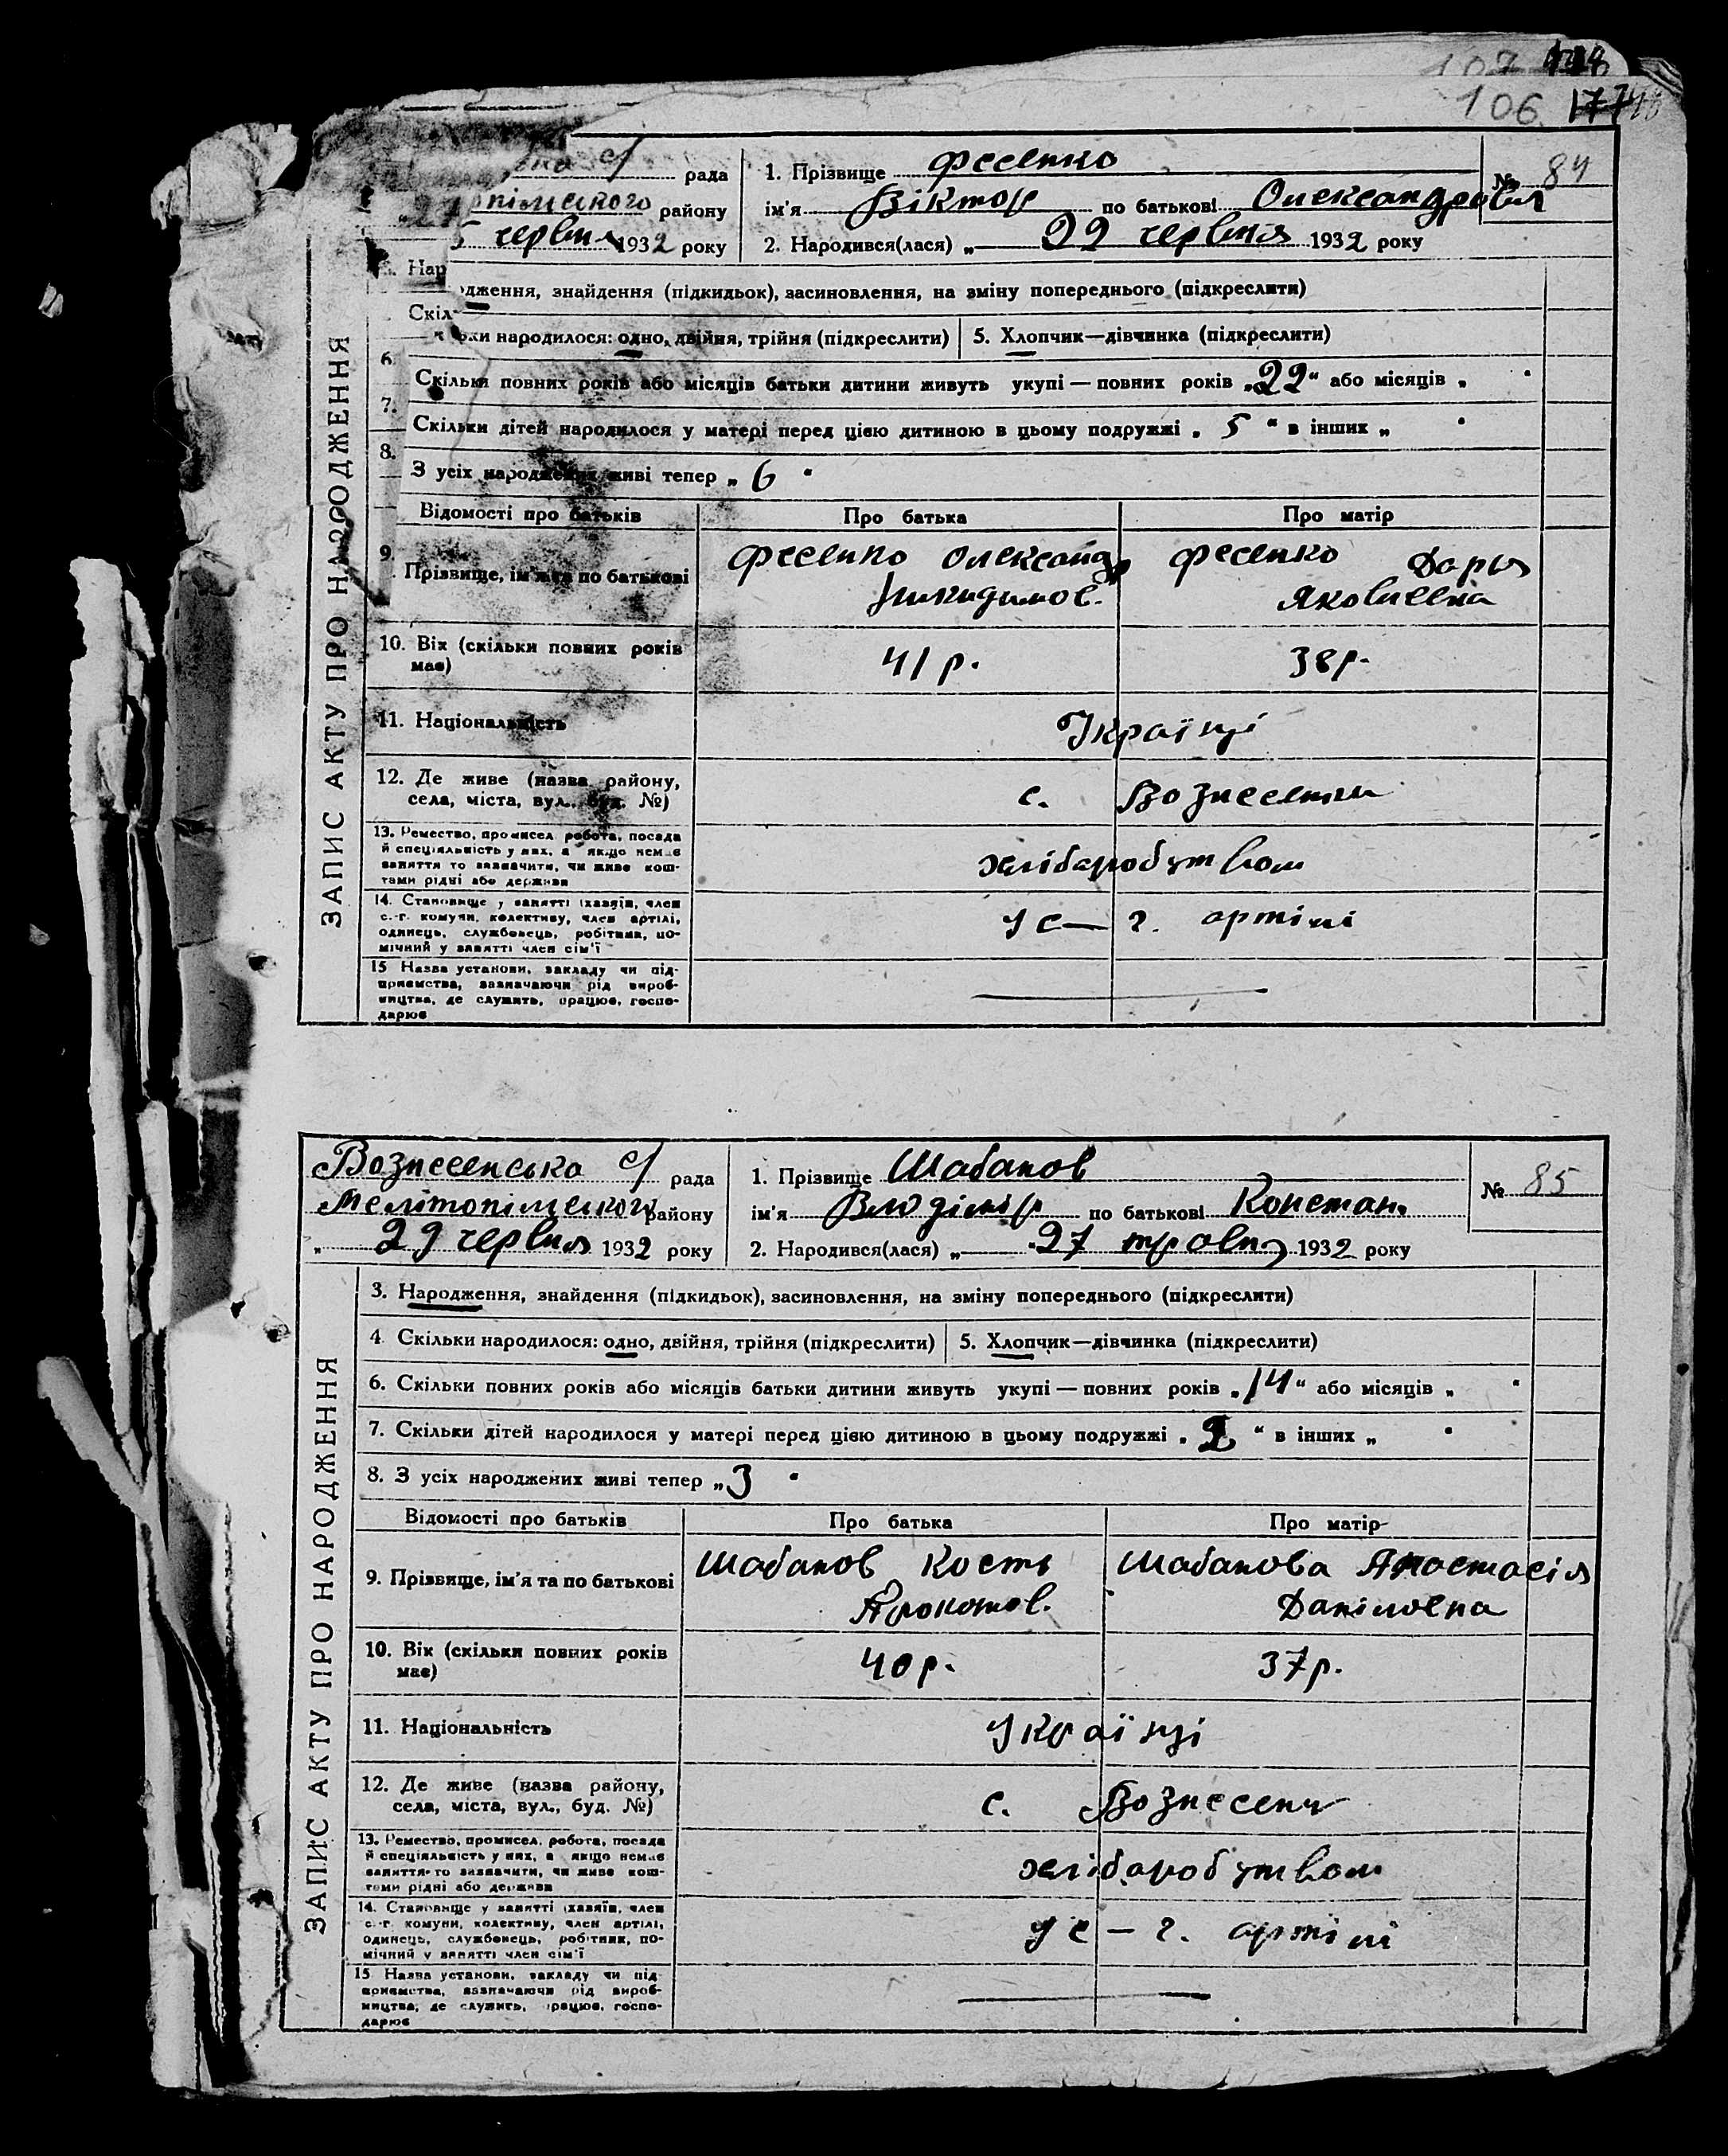 107
106
рада
1. Прізвище Фесенко
№ 84
району
ім'я Віктор по батькові Олександрович
червня 1932 року
2. Народився(лася) „ 22 червня 1932 року
ЗАПИС АКТУ ПРО НАРОДЖЕННЯ
Нар
дження, знайдення (підкидьок), засиновлення, на зміну попереднього (підкреслити)
Скіл
ьки народилося: одно, двійня, трійня (підкреслити) 5. Хлопчик—дівчинка (підкреслити)
6. Скільки повних років або місяців батьки дитини живуть укупі — повних років „22“ або місяців „ “
7. Скільки дітей народилося у матері перед цією дитиною в цьому подружжі „ 5 “ в інших „ “
8. З усіх народжених живі тепер „ 6 “
Відомості про батьків Про батька Про матір
9. Прізвище, ім'я та по батькові Фесенко Олександр Фесенко Дарья
Никидимов. Яковлевна
10. Вік (скільки повних років має) 41 р. 38 р.
11. Національність Українці
12. Де живе (назва району,
села, міста, вул., буд. №) с. Вознесенки
13. Ремество, промисел, робота, посада
й спеціяльність у них, а якщо немає
заняття то зазначити, чи живе кош-
тами рідні або держави
хліборобством
14. Становище у занятті (хазяїн, член
с.-г. комуни, колективу, член артілі,
одинець, службовець, робітник, по-
мічний у занятті член сім'ї
у с — г. артілі
15 Назва установи, закладу чи під-
приємства, зазначаючи рід вироб-
ництва, де служить, працює, госпо-
дарює
Вознесенська с/ рада
1. Прізвище Шабанов
№ 85
Мелітопільского району
ім'я Владімір по батькові Констан.
„ 29 червня 1932 року
2. Народився(лася) „ 27 травня 1932 року
ЗАПИС АКТУ ПРО НАРОДЖЕННЯ
3. Народження, знайдення (підкидьок), засиновлення, на зміну попереднього (підкреслити)
4 Скільки народилося: одно, двійня, трійня (підкреслити) 5. Хлопчик—дівчинка (підкреслити)
6. Скільки повних років або місяців батьки дитини живуть укупі — повних років „14“ або місяців „ “
7. Скільки дітей народилося у матері перед цією дитиною в цьому подружжі „ 2 “ в інших „ “
8. З усіх народжених живі тепер „ 3 “
Відомості про батьків Про батька Про матір
9. Прізвище, ім'я та по батькові Шабанов Кость Шабанова Анастасія
Даніловна
10. Вік (скільки повних років має) 40 р. 37 р.
11. Національність Українці
12. Де живе (назва району,
села, міста, вул., буд. №) с. Вознесенч
13. Ремество, промисел, робота, посада
й спеціяльність у них, а якщо немає
заняття то зазначити, чи живе кош-
тами рідні або держави
хліборобством
14. Становище у занятті (хазяїн, член
с.-г. комуни, колективу, член артілі,
одинець, службовець, робітник, по-
мічний у занятті член сім'ї
у с — г. артілі
15 Назва установи, закладу чи під-
приємства, зазначаючи рід вироб-
ництва, де служить, працює, госпо-
дарює